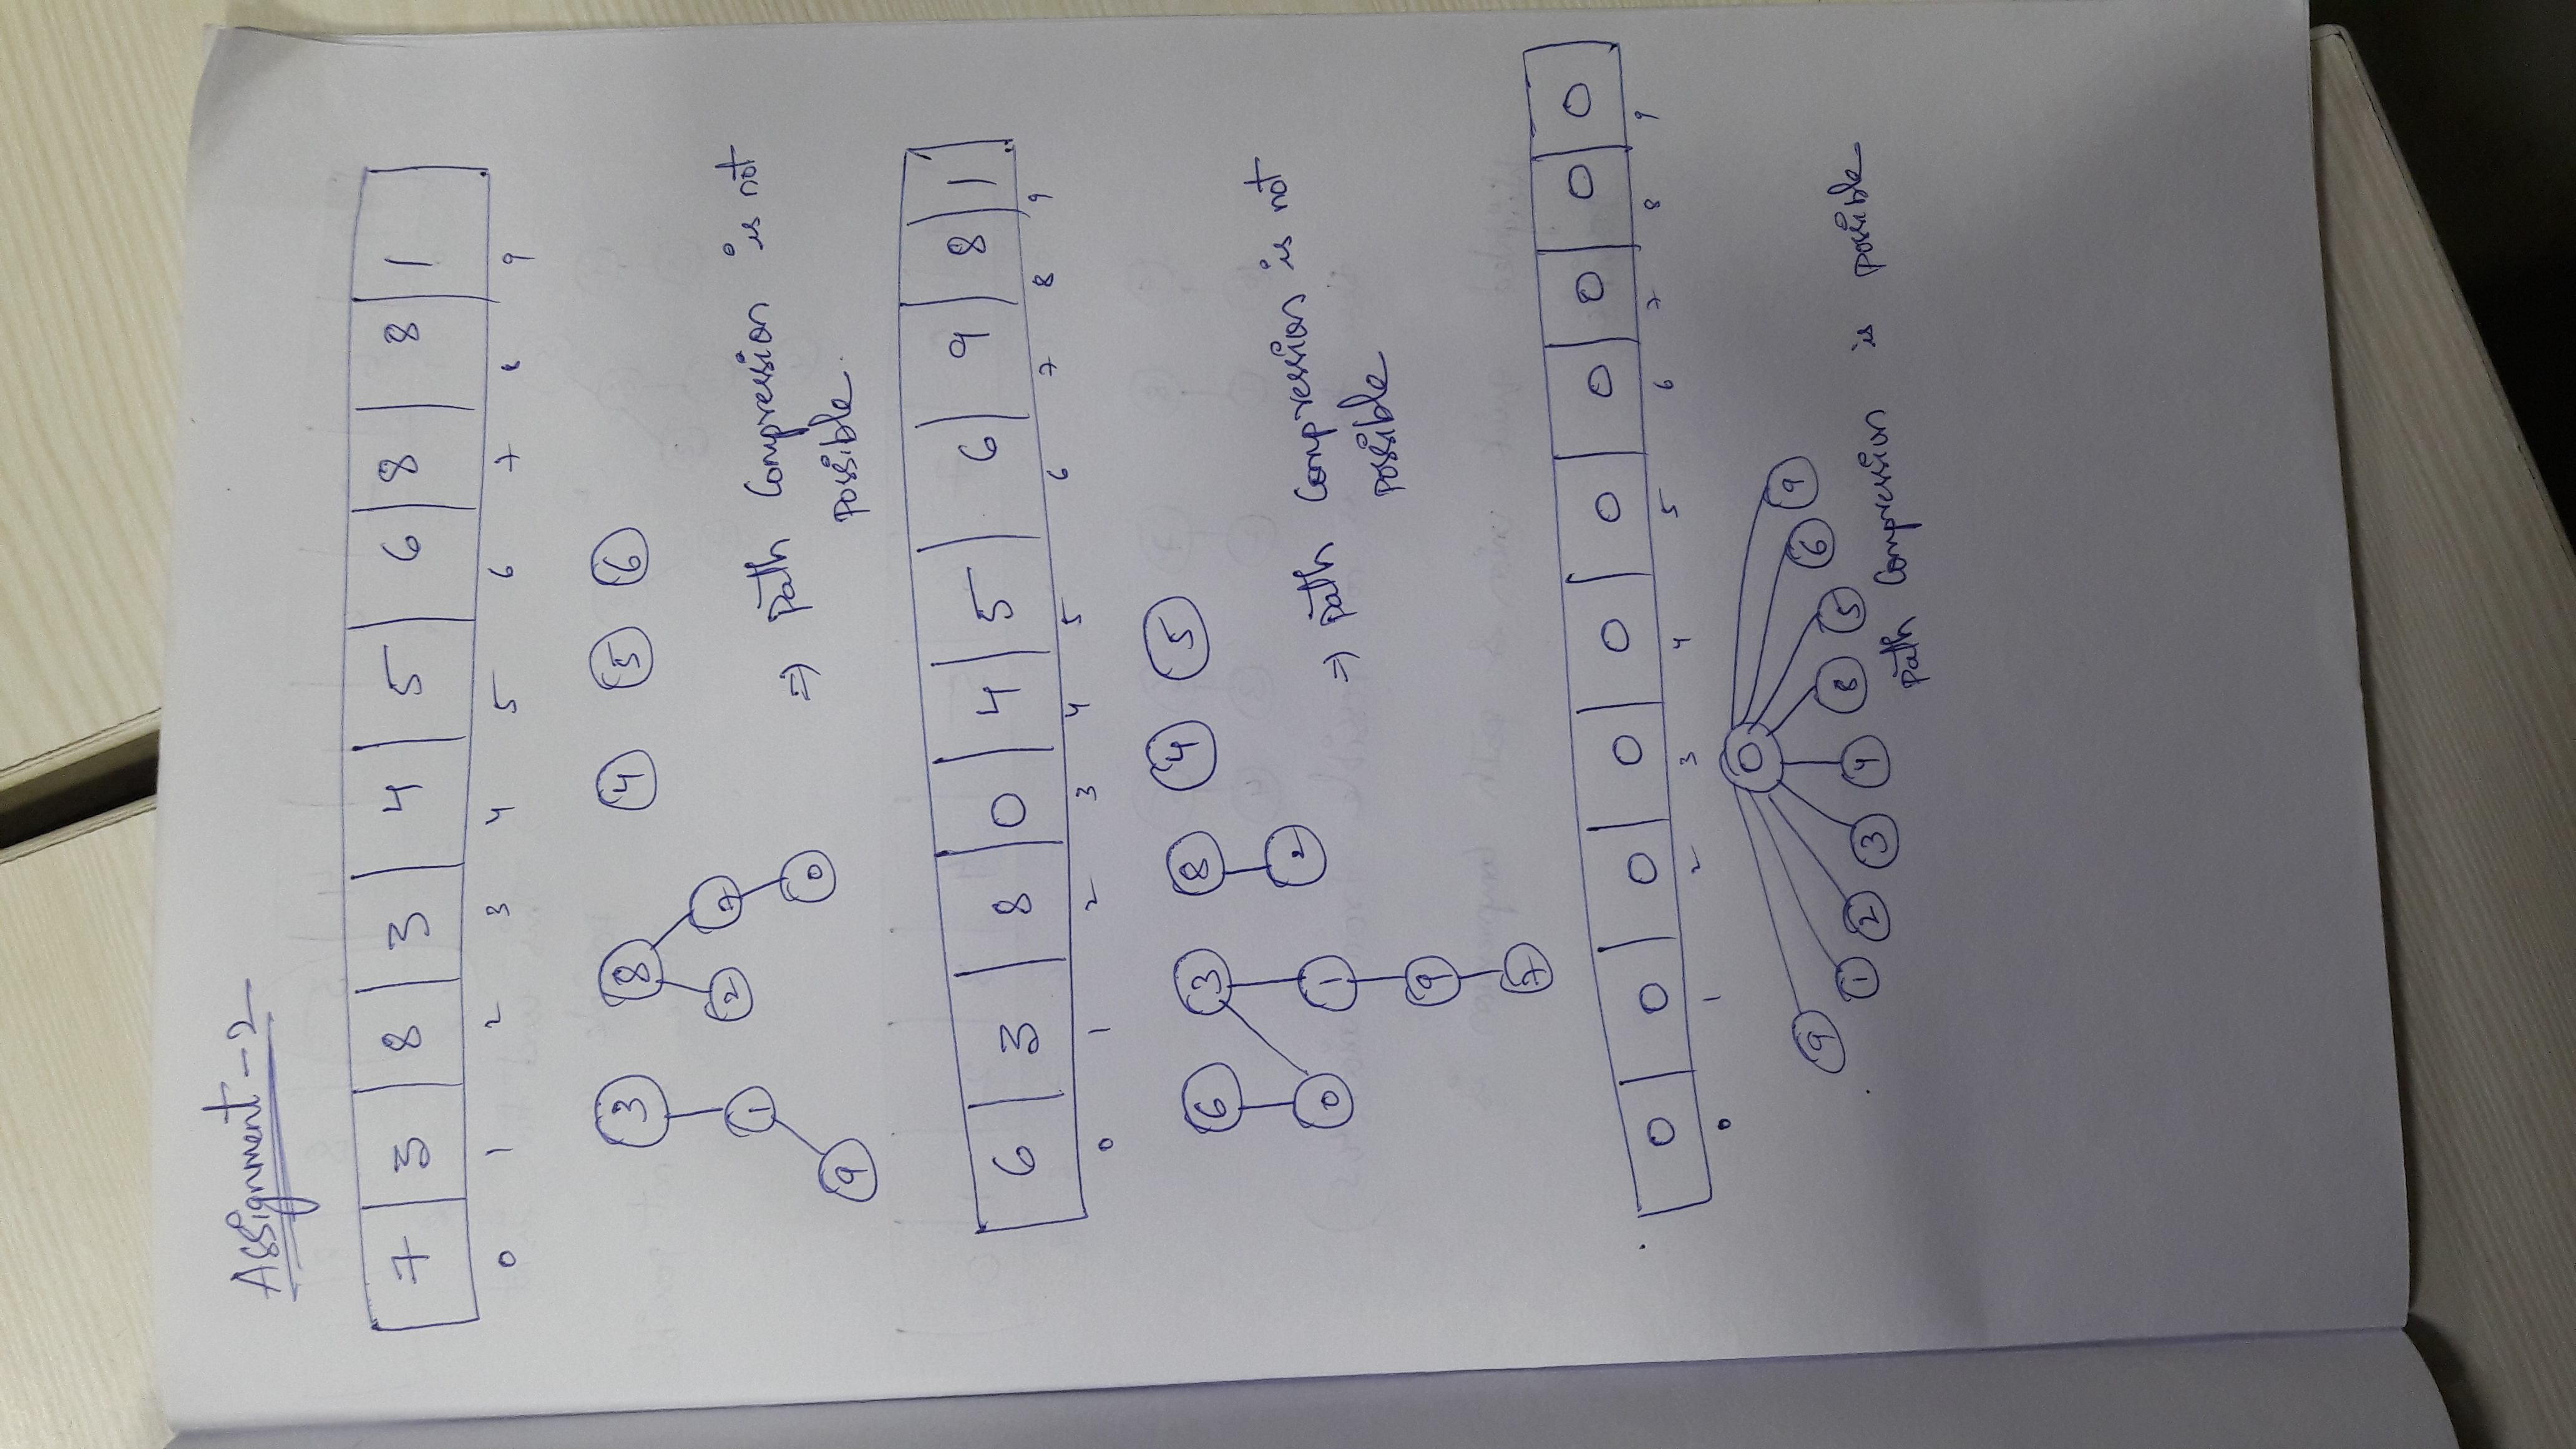 Assignment-2
7 3 8 3 4 5 6 8 8 1
0 1 2 3 4 5 6 7 8 9
3 8 4 5 6
1 2 7
9 0
=> Path Compression is not
possible.
6 3 8 0 4 5 6 9 8 1
0 1 2 3 4 5 6 7 8 9
6 3 8 4 5
0 1 2
9
7
=> Path Compression is not
possible
0 0 0 0 0 0 0 0 0 0
0 1 2 3 4 5 6 7 8 9
0
9 1 2 3 4 8 5 6 9
Path Compression is possible